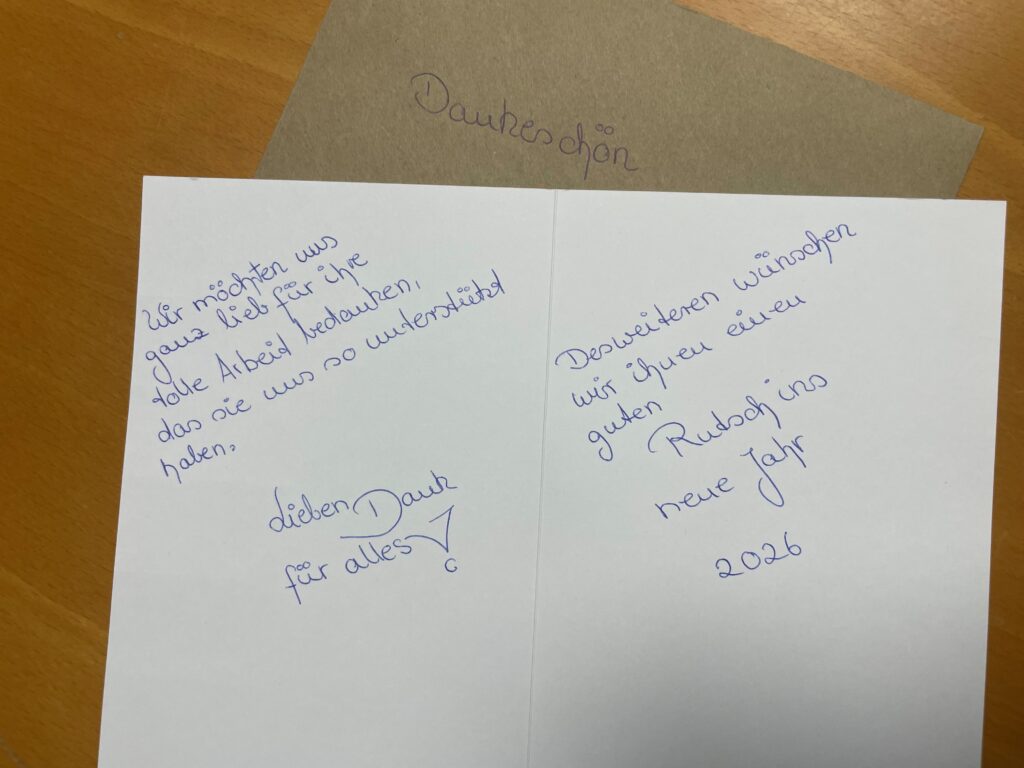 Dankeschön
Wir möchten uns
ganz lieb für ihre
tolle Arbeit bedanken,
das sie uns so unterstützt
haben.
Lieben Dank
für alles!
Desweiteren wünschen
wir ihnen einen
guten
Rutsch ins
neue Jahr
2026